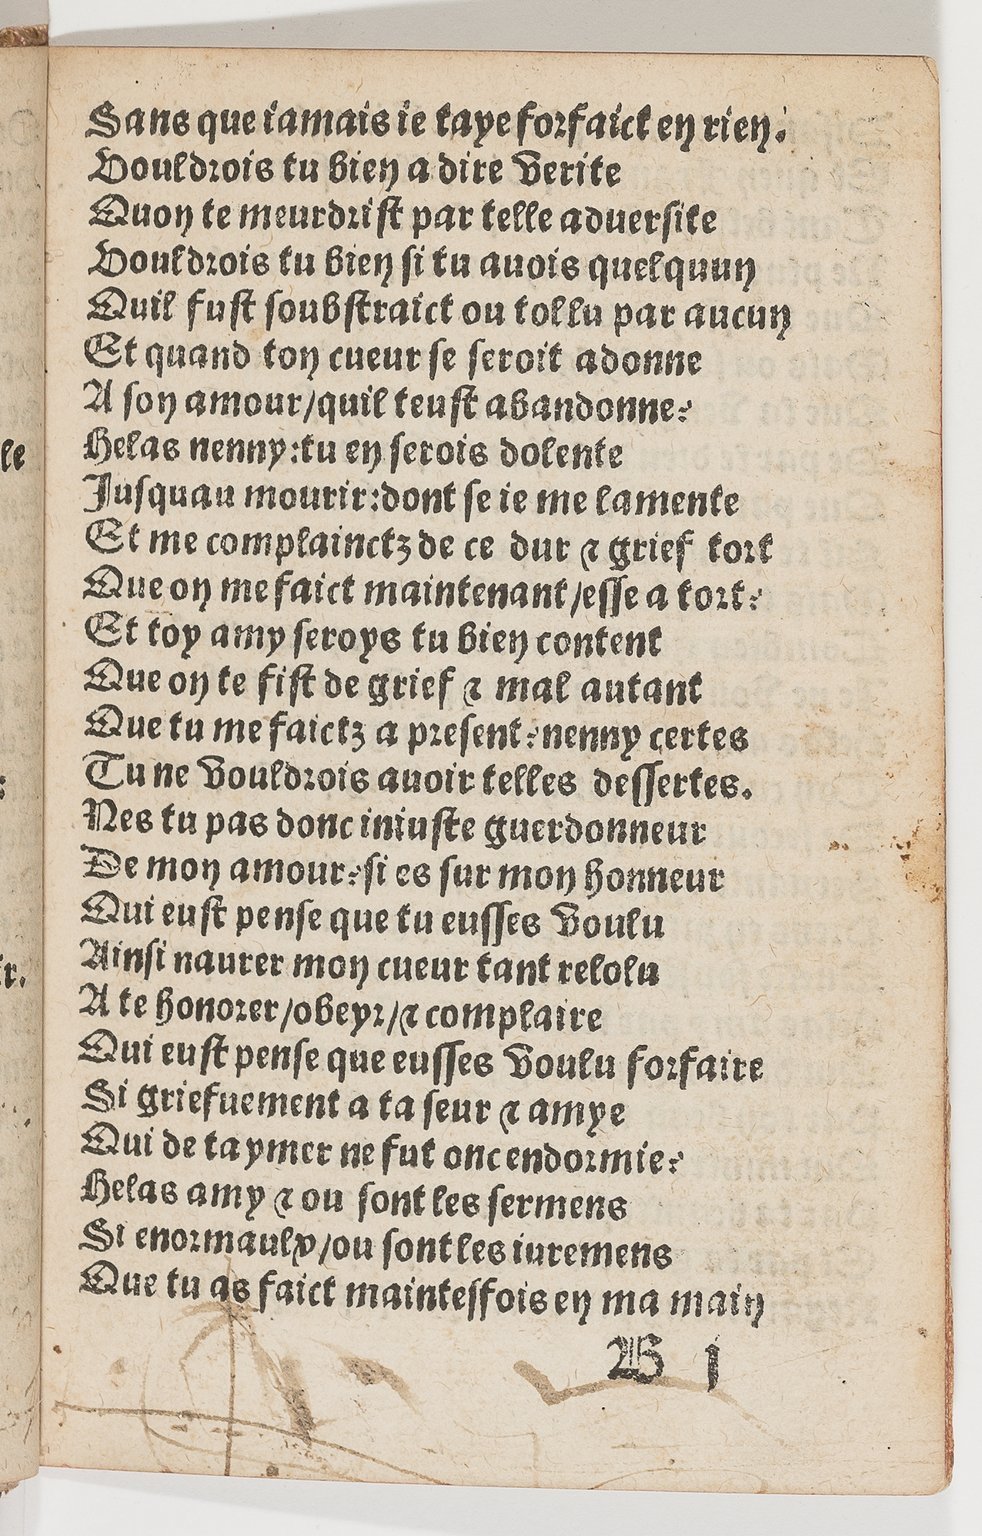 Sans que iamais ie taye forfaict en rien.
Vouldrois tu bien a dire verite
Quon te meurdrist par telle aduersite
Vouldrois tu bien si tu auois quelquun
Quil fust soubstraict ou tollu par aucun
Et quand ton cueur se seroit adonne
A son amour/quil teust abandonne?
Helas nenny:tu en serois dolente
Jusquau mourir:dont se ie me lamente
Et me complainctz de ce dur & grief tort
Que on me faict maintenant/esse a tort?
Et toy amy seroys tu bien content
Que on te fist de grief & mal autant
Que tu me faictz a present?nenny certes
Tu ne vouldrois auoir telles dessertes.
Nes tu pas donc iniuste guerdonneur
De mon amour?si es sur mon honneur
Qui eust pense que tu eusses voulu
Ainsi naurer mon cueur tant relolu
A te honorer/obeyr/& complaire
Qui eust pense que eusses voulu forfaire
Si griefuement a ta seur & amye
Qui de taymer ne fut onc endormie?
Helas amy & ou sont les sermens
Si enormaulx/ou sont les iuremens
Que tu as faict maintesfois en ma main
B j